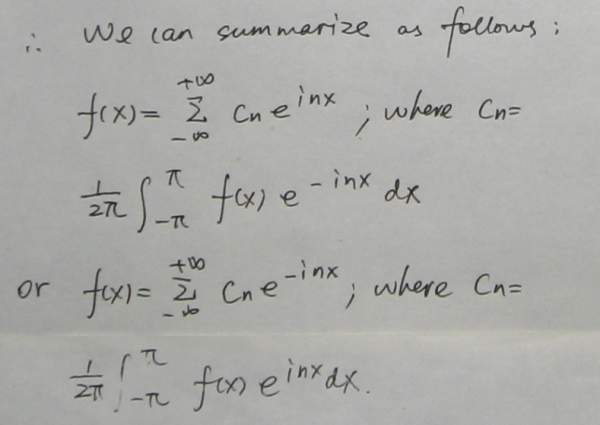 ∴ We can summarize as follows:
f(x) = Σ_{-∞}^{+∞} Cn e^{inx} ; where Cn=
1/2π ∫_{-π}^{π} f(x) e^{-inx} dx
or f(x) = Σ_{-∞}^{+∞} Cn e^{-inx} ; where Cn=
1/2π ∫_{-π}^{π} f(x) e^{inx} dx.